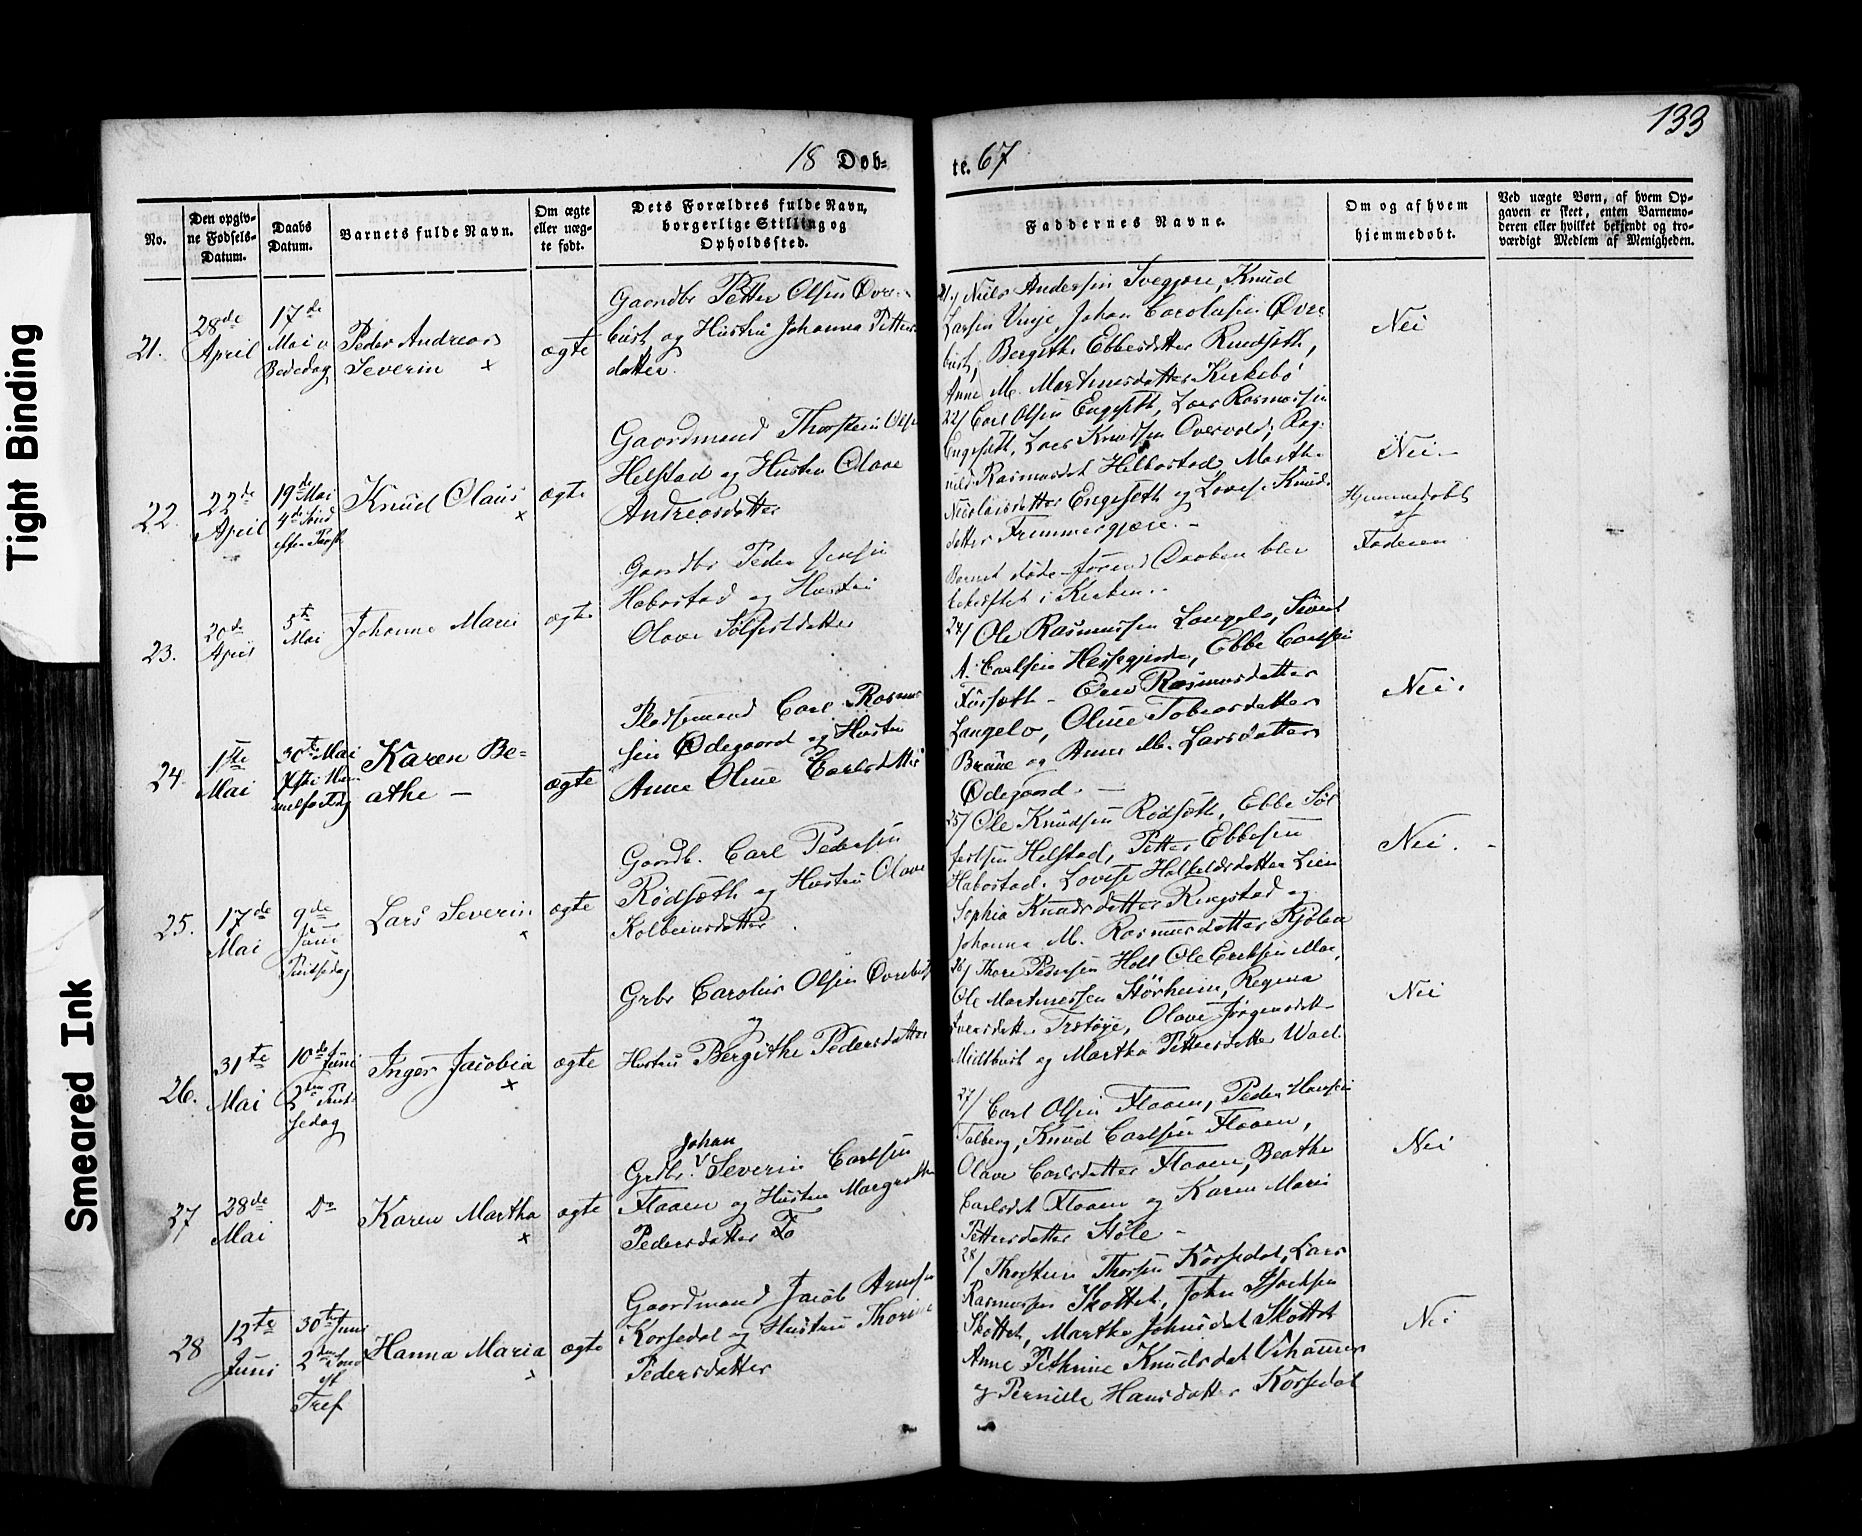 Tight Binding
Smeared Ink
133
18 Døb=
te. 67
No.
Den opgiv-
ne Fødsels-
Datum.
Daabs
Datum.
Barnets fulde Navn.
Om ægte
eller uæg-
te født.
Dets Forældres fulde Navn,
borgerlige Stilling og
Opholdssted.
Faddernes Navne.
Om og af hvem
hjemmedøbt.
Ved uægte Børn, af hvem Op-
gaven er skeet, enten Barnemo-
deren eller hvilket bekjendt og tro-
værdigt Medlem af Menigheden.
21.
28de
April
17de
Mai
Bededag
Peder Andreas
Severin x
ægte
Gaardbr Petter Olsen Øvre-
bust og Hustru Johanna Petters
datter.
21/ Niels Andersen Svegjære, Knud
Larsen Vinje, Johan Carolusen Øvre
bust, Bergithe Ebbesdatter Rindseth,
Anne M. Martinusdatter Kirkebø
Nei
22.
22de
April
19de Mai
4de Sønd
efter Paask
Knud Olaus
x
ægte
Gaardmand Thorstein Olsen
Helstad og Hustru Olave
Andreasdatter
22/ Carl Olsen Engeseth, Lars Rasmussen
Engeseth, Lars Knudsen Overvold, Rag-
nild Rasmusdat Helbostad, Marthe
Nicolaisdatter Engeseth og Lovise Knuds
datter Fremmergjære. -
Nei -
23.
20de
April
5te
Mai
Johanne Marie
ægte
Gaardbr Peder Jensen
Habostad og Hustru
Olave Sølfestdatter
Barnet døde førend Daaben blev
bekræftet i Kirken. -
Hjemmedøbt
af
Faderen
24.
1ste
Mai
30te Mai
Karen Be-
athe -
ægte
Pladsemand Carl Rasmus
sen Ødegaard og Hustru
Anne Oline Carlsdatter
24/ Ole Rasmussen Langelo, Sivert
A. Carlsen Hessegjerde, Ebbe Carlsen
Rasmusdatter
Langelo, Oline Tobiasdatter
Brune og Anne M. Larsdatter
Ødegaard. -
Nei.
25.
17de
Mai
9de
Juni
Pintsedag
Lars Severin
x
ægte
Gaardb. Carl Pedersen
Rødsæth og Hustru Olave
Kolbeinsdatter
25/ Ole Knudsen Rødsæth, Ebbe Søl
festsen Helstad, Petter Ebbesen
Habostad. Lovise Halkeldsdatter Lien
Sophia Knudsdatter Ringstad og
Johanna M. Rasmusdatter Kjølaa
Nei. -
26.
31te
Mai
10de Juni
2den Pint-
sedag
Inger Jacobia
x
ægte
Grbr Carolus Olsen Øvrebust
og
Hustru Bergithe Pedersdatter
26/ Thore Pedersen Holt Ole Eriksen Moe,
Ole Martinussen Störheim, Regina
Iversdatt. Olave Jørgensdatt
Midtbust og Martha Pettersdatter Wael
Nei
27
28de
Mai
Do
Karen Martha
x
ægte
Johan
Grdbr. V Severin Carlsen
Flaaen og Hustru Margrethe
Pedersdatter Fo
27/ Carl Olsen Flaaen, Peder Hansen
Talberg, Knud Carlsen Flaaen,
Olave Carlsdatter Flaaen, Beathe
Carlsdat Flaaen og Karen Marie
Pettersdatter Hole -
Nei
28
12te
Juni
30te Juni
2den Sønd
ef
Tref
Hanna Maria
x
ægte
Gaardmand Jacob Arnesen
Korsedal og Hustru Thorine
Pedersdatter
28/ Thorstein Thorsen Korsedal, Lars
Rasmussen Skottet, John Isachsen
Skottet, Martha Johnsdat Skottet
Anne Pethrine Knudsdat
og Pernille Hansdatter Korsedal
Nei